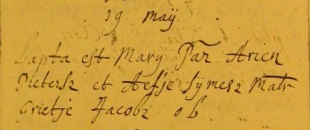 19 maÿ.
Bapta est Mary Par Arien
Pietersz et Aefje Symesz Matr
Grietje Jacobz ob.